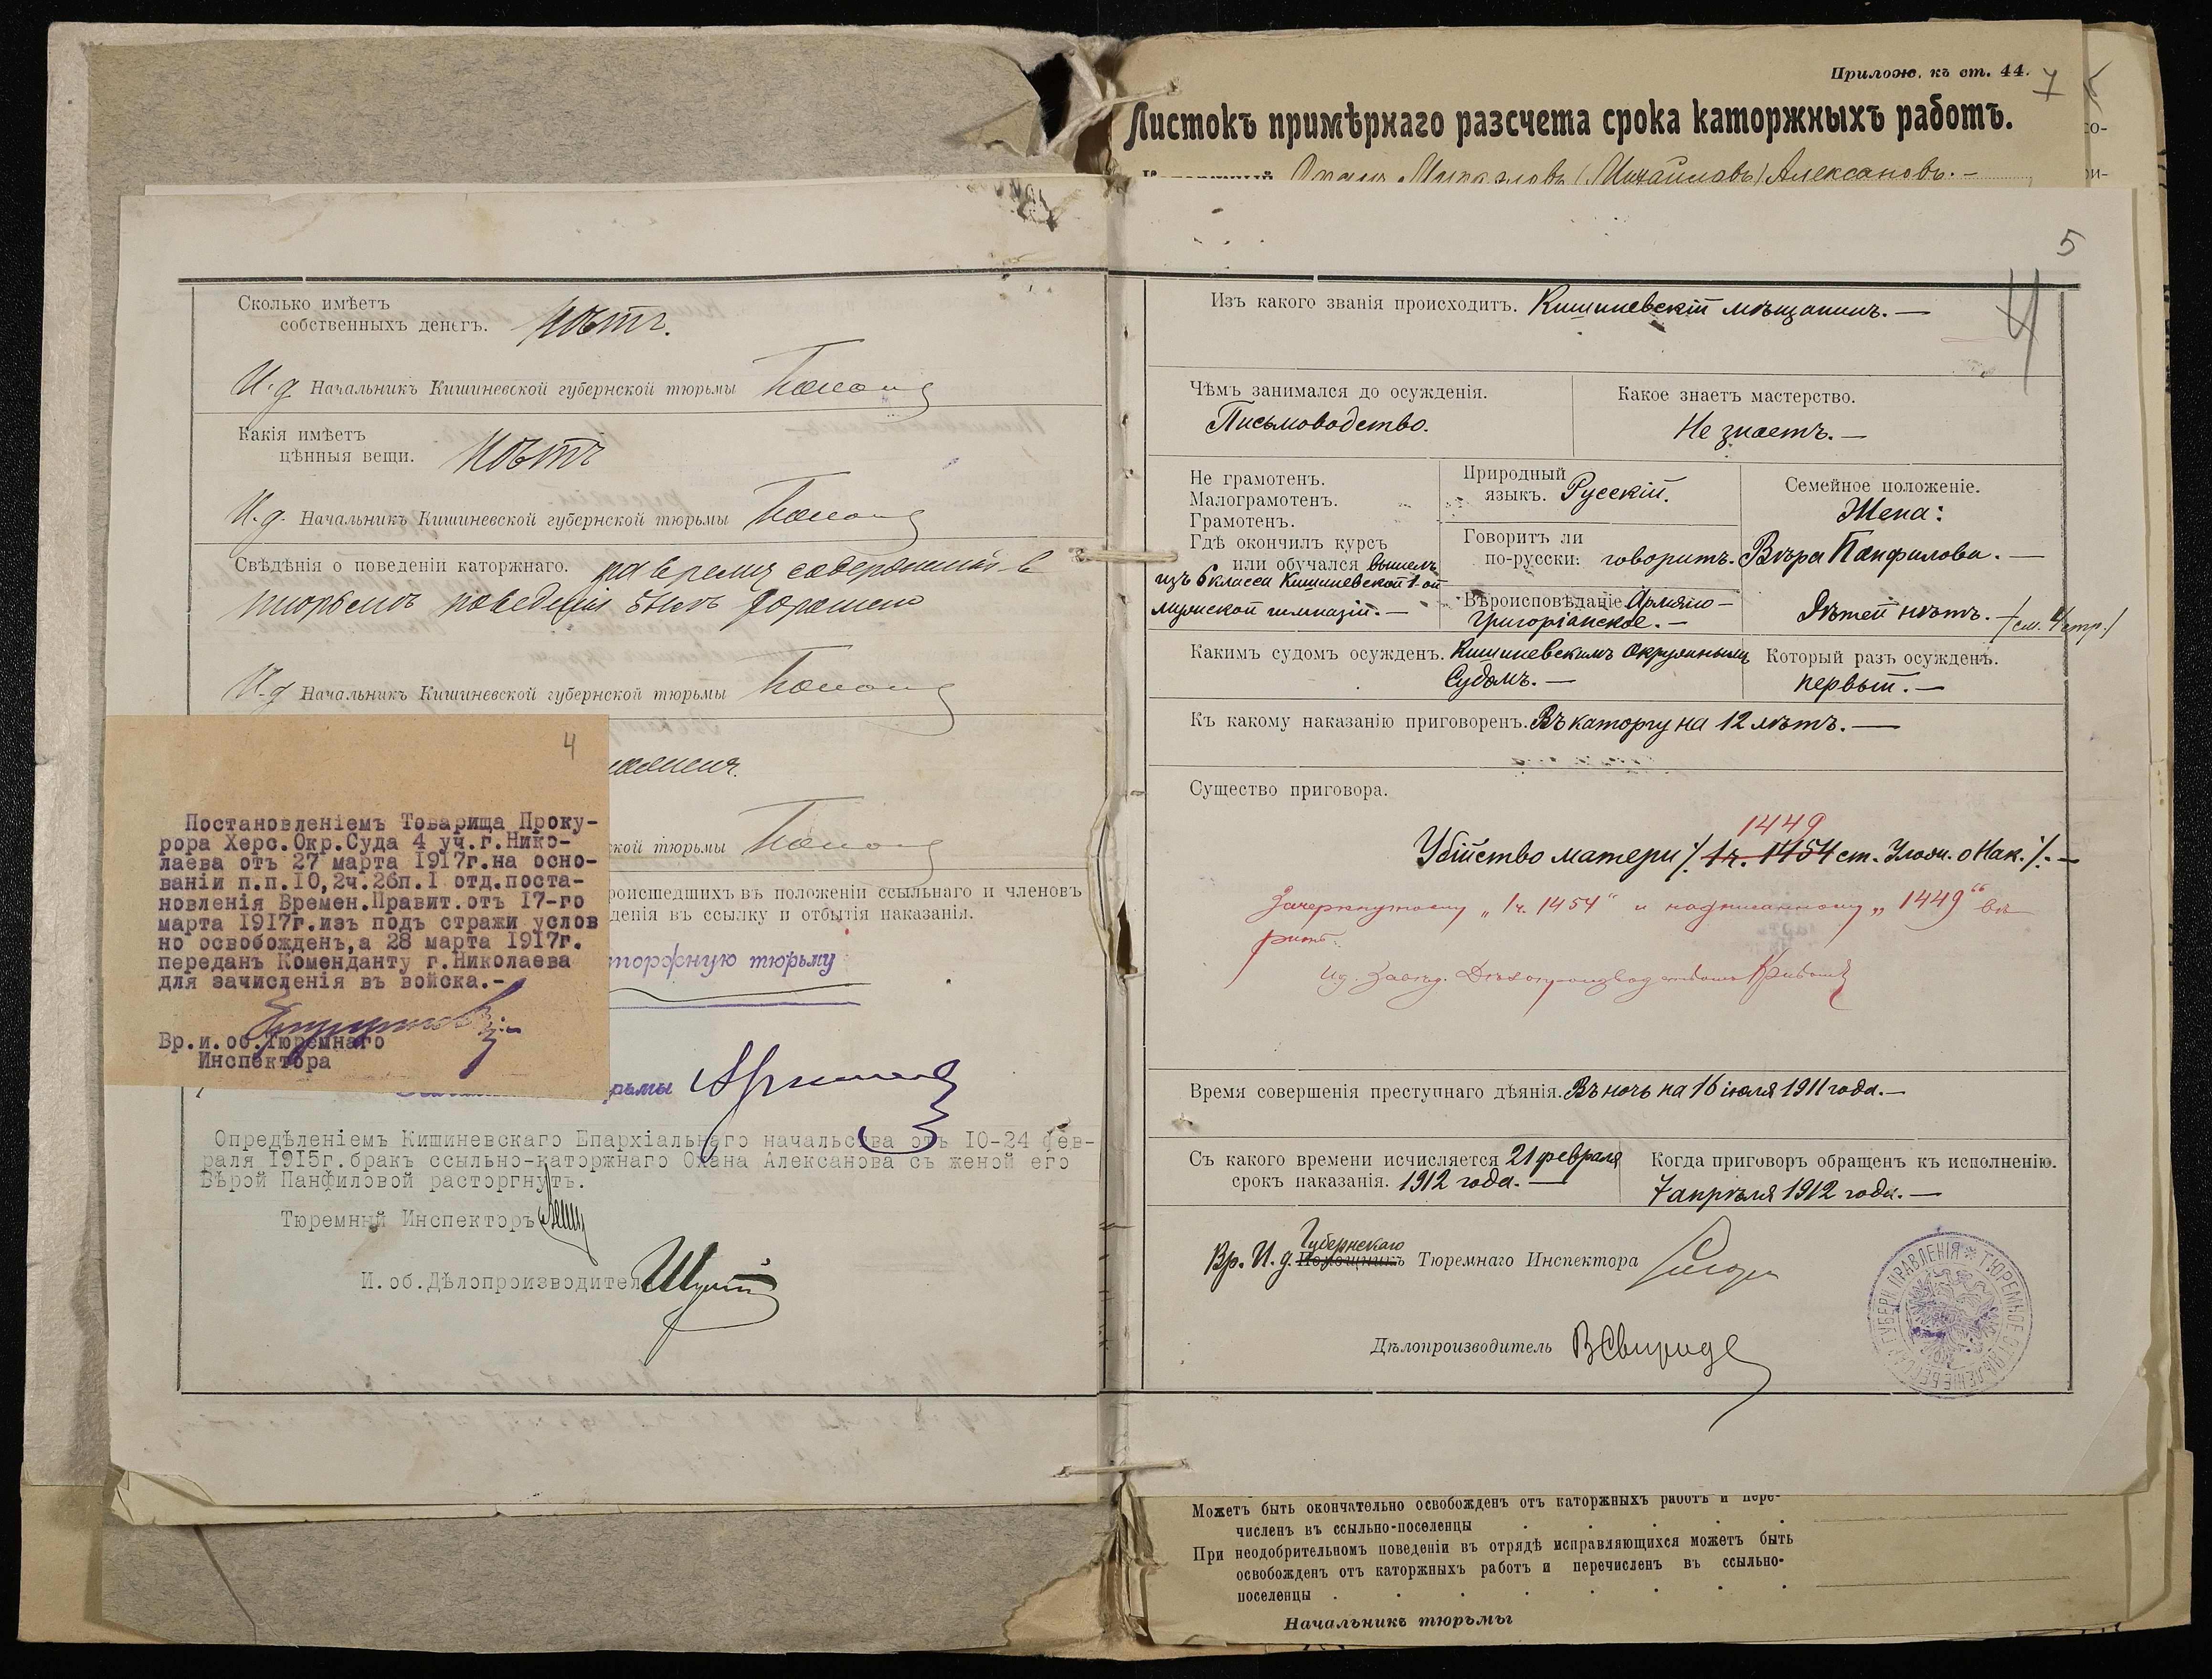 Прилож. къ ст. 44.
7
Листокъ примѣрнаго разсчета срока каторжныхъ работъ.
Оганъ Микаэловъ (Михайловъ) Алексановъ. —
Сколько имѣетъ
собственныхъ денегъ. Нѣтъ.
И. д. Начальникъ Кишиневской губернской тюрьмы
Какія имѣетъ
цѣнныя вещи. Нѣтъ
И. д. Начальникъ Кишиневской губернской тюрьмы
Свѣдѣнія о поведеніи каторжнаго. за время содержанія в
тюрьмѣ поведенія былъ хорошаго
И. д. Начальникъ Кишиневской губернской тюрьмы
4
Постановленіемъ Товарища Проку-
рора Херс.Окр.Суда 4 уч.г.Нико-
лаева отъ 27 марта 1917г.на осно-
ваніи п.п.10,2ч.2бп.I отд.поста-
новленія Времен.Правит.отъ 17-го
марта 1917г.изъ подъ стражи услов
но освобожденъ,а 28 марта 1917г.
переданъ Коменданту г.Николаева
для зачисленія въ войска.-
Вр.и.об.Тюремнаго
Инспектора
ской тюрьмы
роисшедшихъ въ положеніи ссыльнаго и членовъ
денія въ ссылку и отбытія наказанія.
торжную тюрьму
рьмы
Опредѣленіемъ Кишиневскаго Епархіальнаго начальства отъ 10-24 фев-
раля 1915г.бракъ ссыльно-каторжнаго Огана Алексанова съ женой его
Вѣрой Панфиловой расторгнутъ.
Тюремный Инспекторъ
И.об.Дѣлопроизводител
5
4
Изъ какого званія происходитъ. Кишиневскій мѣщанинъ. —
Чѣмъ занимался до осужденія.
Письмоводство.
Какое знаетъ мастерство.
Не знаетъ. —
Не грамотенъ.
Малограмотенъ.
Грамотенъ.
Гдѣ окончилъ курсъ
или обучался вышелъ
изъ 6 класса Кишиневской 1-ой
мужской гимназіи. —
Природный
языкъ. Русскій.
Говоритъ ли
по-русски: говоритъ.
Вѣроисповѣданіе Армяно —
Григоріанское. —
Семейное положеніе.
Жена:
Вѣра Панфилова. —
Дѣтей нѣтъ. — /см. 4 стр./
Какимъ судомъ осужденъ. Кишиневскимъ Окружнымъ
Судомъ. —
Который разъ осужденъ.
первый. —
Къ какому наказанію приговоренъ. Въ каторгу на 12 лѣтъ. —
Существо приговора.
1449
Убійство матери /. 1ч. 1454 ст. Улож. о Нак. /. —
Зачеркнутому „1ч. 1454“ и надписанному „1449“ вѣ
рить.
Ид. Завѣд. Дѣлопроизводствомъ
Время совершенія преступнаго дѣянія. Въ ночь на 16 іюля 1911 года. —
Съ какого времени исчисляется 21 февраля
срокъ наказанія. 1912 года. —
Когда приговоръ обращенъ къ исполненію.
7 апрѣля 1912 года. —
Губернскаго
Вр. И. д. Помощникъ Тюремнаго Инспектора
Дѣлопроизводитель
ТЮРЕМНОЕ ОТДѢЛЕНІЕ БЕССАР. ГУБЕРН. ПРАВЛЕНІЯ
Можетъ быть окончательно освобожденъ отъ каторжныхъ работъ и пере-
численъ въ ссыльно-поселенцы
При неодобрительномъ поведеніи въ отрядѣ исправляющихся можетъ быть
освобожденъ отъ каторжныхъ работъ и перечисленъ въ ссыльно-
поселенцы
Начальникъ тюрьмы